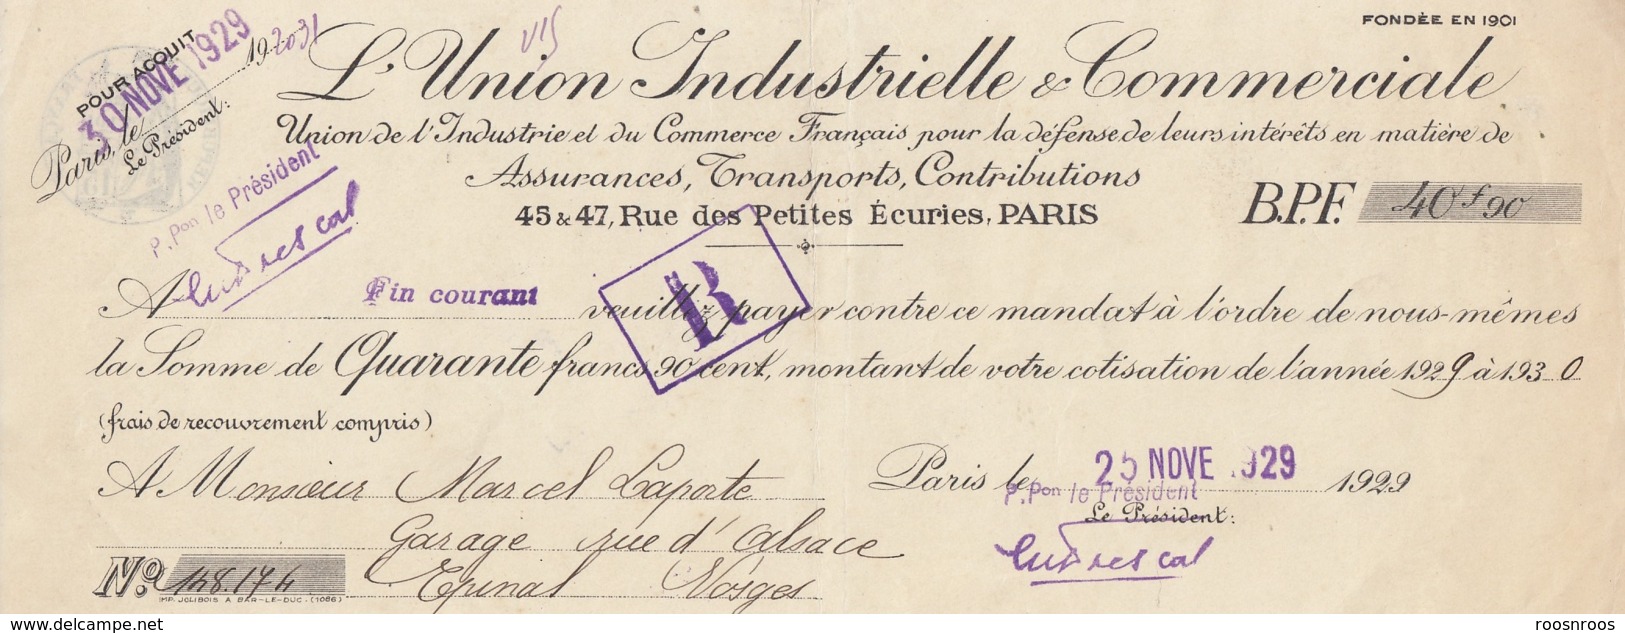 FONDÉE EN 1901
POUR ACQUIT
30 NOVE 1929
Paris, le 192
Le Président:
P. Pon le Président
L'Union Industrielle & Commerciale
Union de l'Industrie et du Commerce Français pour la défense de leurs intérêts en matière de
Assurances, Transports, Contributions
45 & 47, Rue des Petites Écuries, PARIS
B.P.F. 40 f 90
A Fin courant veuillez payer contre ce mandat à l'ordre de nous-mêmes
R
la Somme de Quarante francs 90 cent, montant de votre cotisation de l'année 1929 à 1930
(frais de recouvrement compris)
A Monsieur Marcel Laporte
Paris le 25 NOVE 1929 1929
P. Pon le Président
Le Président:
Garage rue d'Alsace
Epinal Vosges
No. 148.174
IMP. JOLIBOIS A BAR-LE-DUC. (1086)
www.delcampe.net
roosnroos